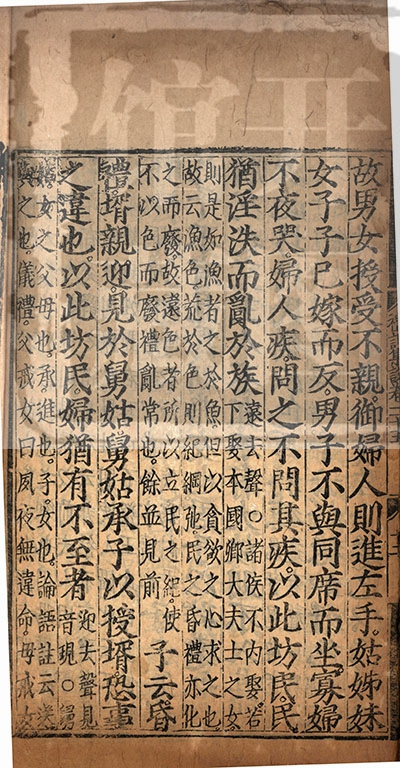 故男女授受不親。御婦人則進左手。姑姊妹
女子子已嫁而反男子不與同席而坐寡婦
不夜哭。婦人疾。問之不問其疾。以此坊民民
猶淫泆而亂於族
遠去聲○諸侯不內娶若
下娶本國卿大夫士之女。
則是如漁者之於魚但以貪欲之心求之也
故云漁色荒於色則紀綱弛民之昏禮亦化
之而廢。故遠色者所以立民之紀。使
不以色而廢禮亂常也。餘並見前
子云昏
禮壻親迎。見於舅姑舅姑承子以授壻恐事
之違也。以此坊民。婦猶有不至者
迎去聲見
音現○舅
姑女之父母也。承進也。子女也。論語註云送
與之也。儀禮。父戒女曰夙夜無違命。母戒女